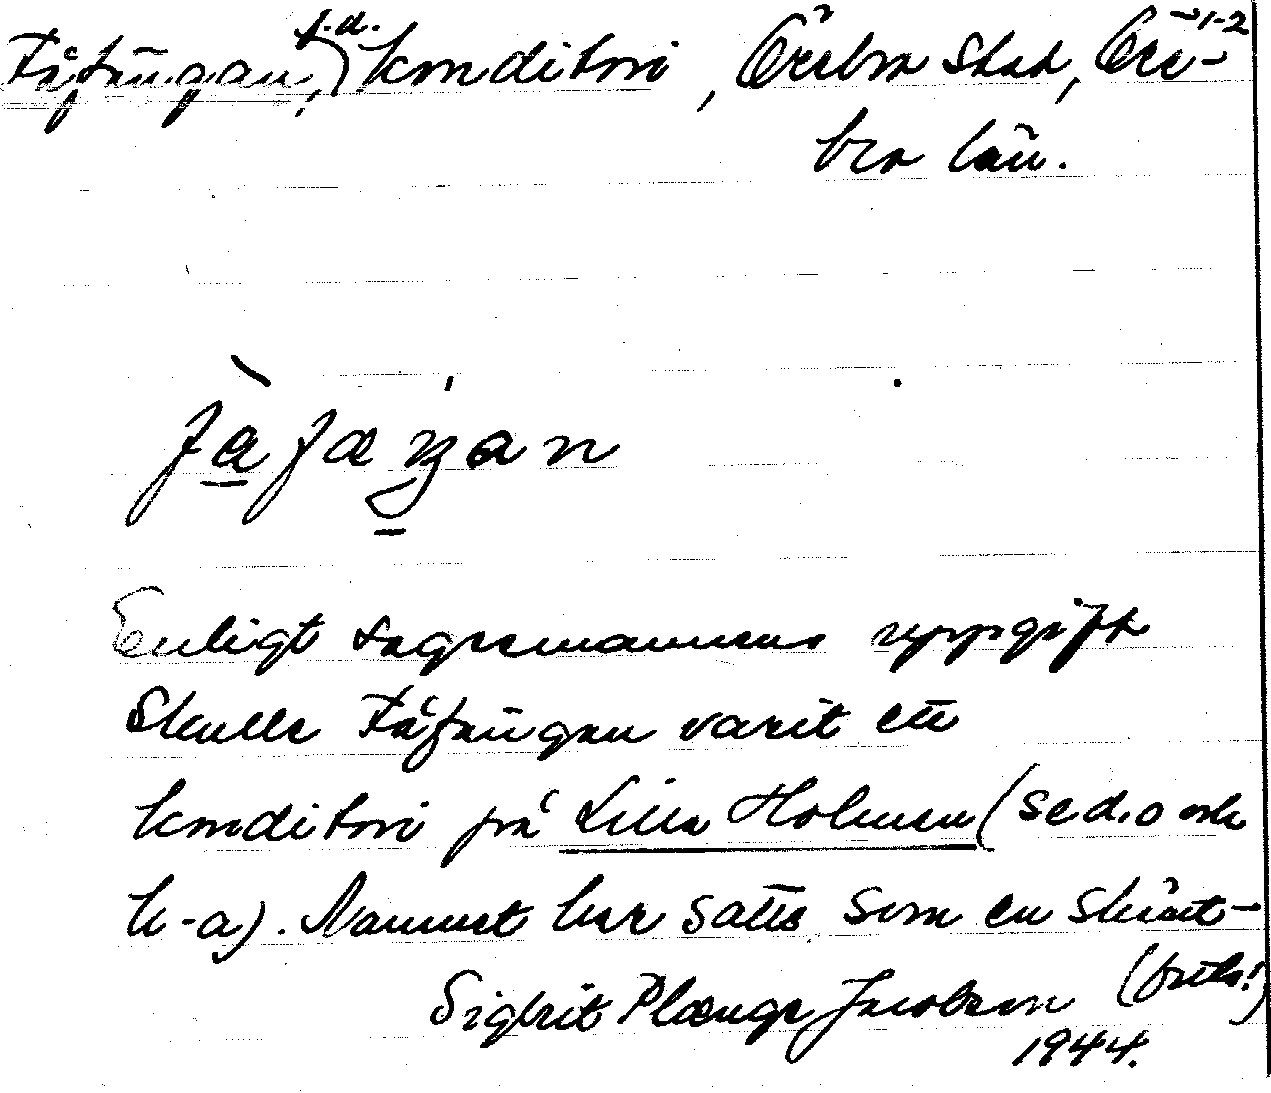 Fåfängan, f.d. konditori, Örebro stad, Öre-
bro län. 1-2
fåfäŋan
Enligt sagesmannens uppgift
skulle Fåfängan varit ett
konditori på Lilla Holmen (se d.o och
k-a). Namnet har satts som en skämt-
(forts.!)
Sigbrit Plænge Jacobson
1944.